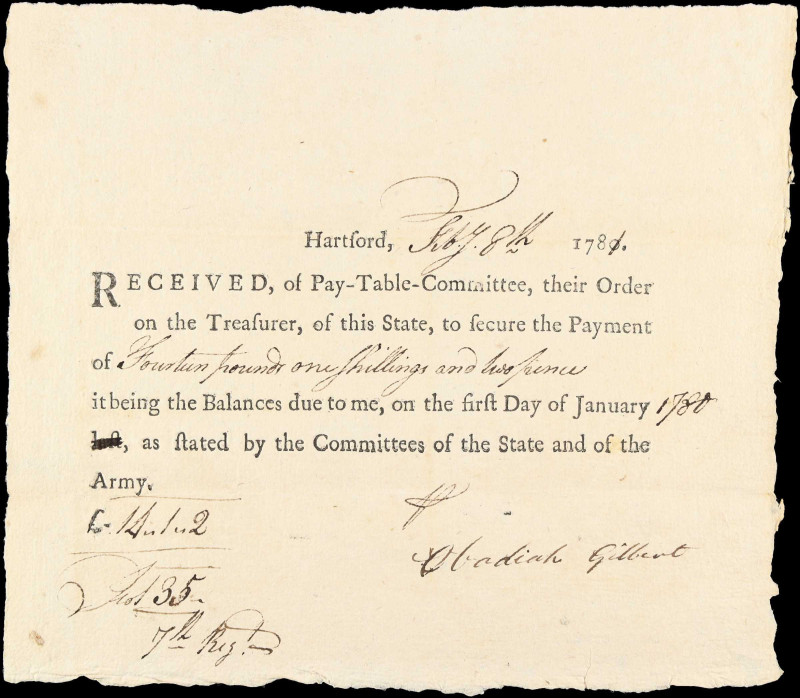 Hartford, Feby. 8th 1781.
RECEIVED, of Pay-Table-Committee, their Order
on the Treaſurer, of this State, to ſecure the Payment
of Fourteen pounds one ſhillings and two pence
it being the Balances due to me, on the firſt Day of January 1780
laſt, as ſtated by the Committees of the State and of the
Army.
£ 14..1..2
Obadiah Gilbert
No 135
7th Regt